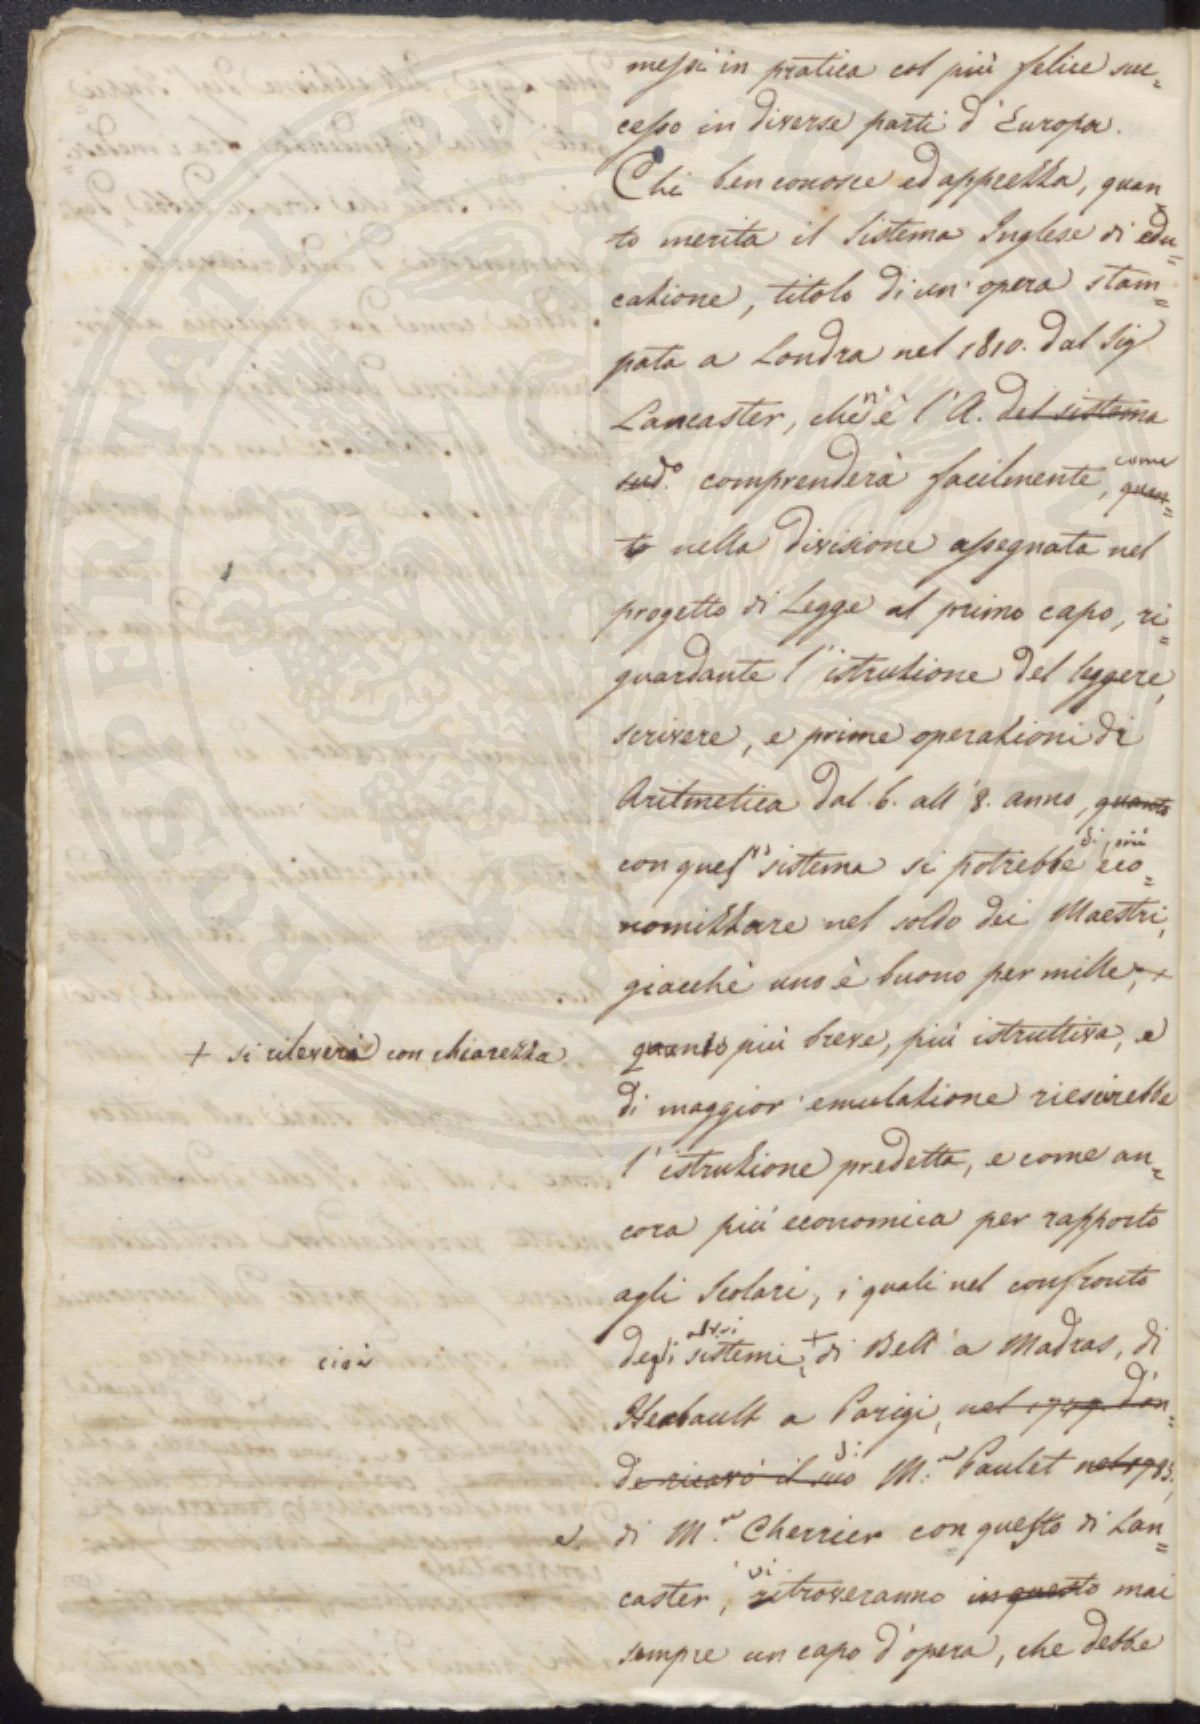 messi in pratica col più felice suc=
cesso in diverse parti d'Europa.
Chi ben conosce ed apprezza, quan=
to merita il Sistema Inglese di edu=
cazione, titolo di un'opera stam=
pata a Londra nel 1810. dal Sig
Lancaster, che n'è l'A. del sistema
sud.o comprenderà facilmente, come quan=
to nella divisione assegnata nel
progetto di Legge al primo capo, ri=
guardante l'istruzione del leggere,
scrivere, e prime operazioni di
Aritmetica dal 6. all'8. anno, quanto
con questo sistema si potrebbe di più eco=
nomizzare nel soldo dei Maestri,
giacchè uno è buono per mille, +
+ si rileverà con chiarezza.
quanto più breve, più istruttiva, e
di maggior emulazione riescirebbe
l'istruzione predetta, e come an=
cora più economica per rapporto
agli Scolari, i quali nel confronto
degli altri sistemi, + di Bell a Madras, di
cioè
Herbault a Parigi, nel 1747. d'on=
de ricavò il suo di M.r Paulet nel 1785,
e di M.r Cherrier con questo di Lan=
caster, vi ritroveranno in questo mai
sempre un capo d'opera, che debbe
POSPERITATI PUBLICAE